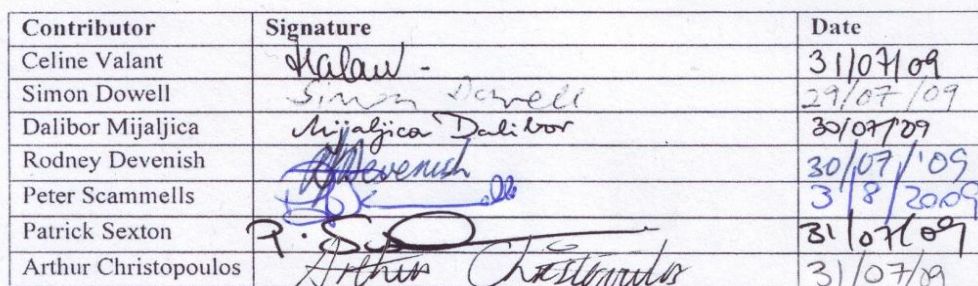 Contributor Signature Date
Celine Valant 31/07/09
Simon Dowell Simon Dowell 29/07/09
Dalibor Mijaljica Mijaljica Dalibor 30/07/'09
Rodney Devenish Devenish 30/07/'09
Peter Scammells 3/8/2009
Patrick Sexton P. 31/07/09
Arthur Christopoulos Arthur Christopoulos 31/07/09